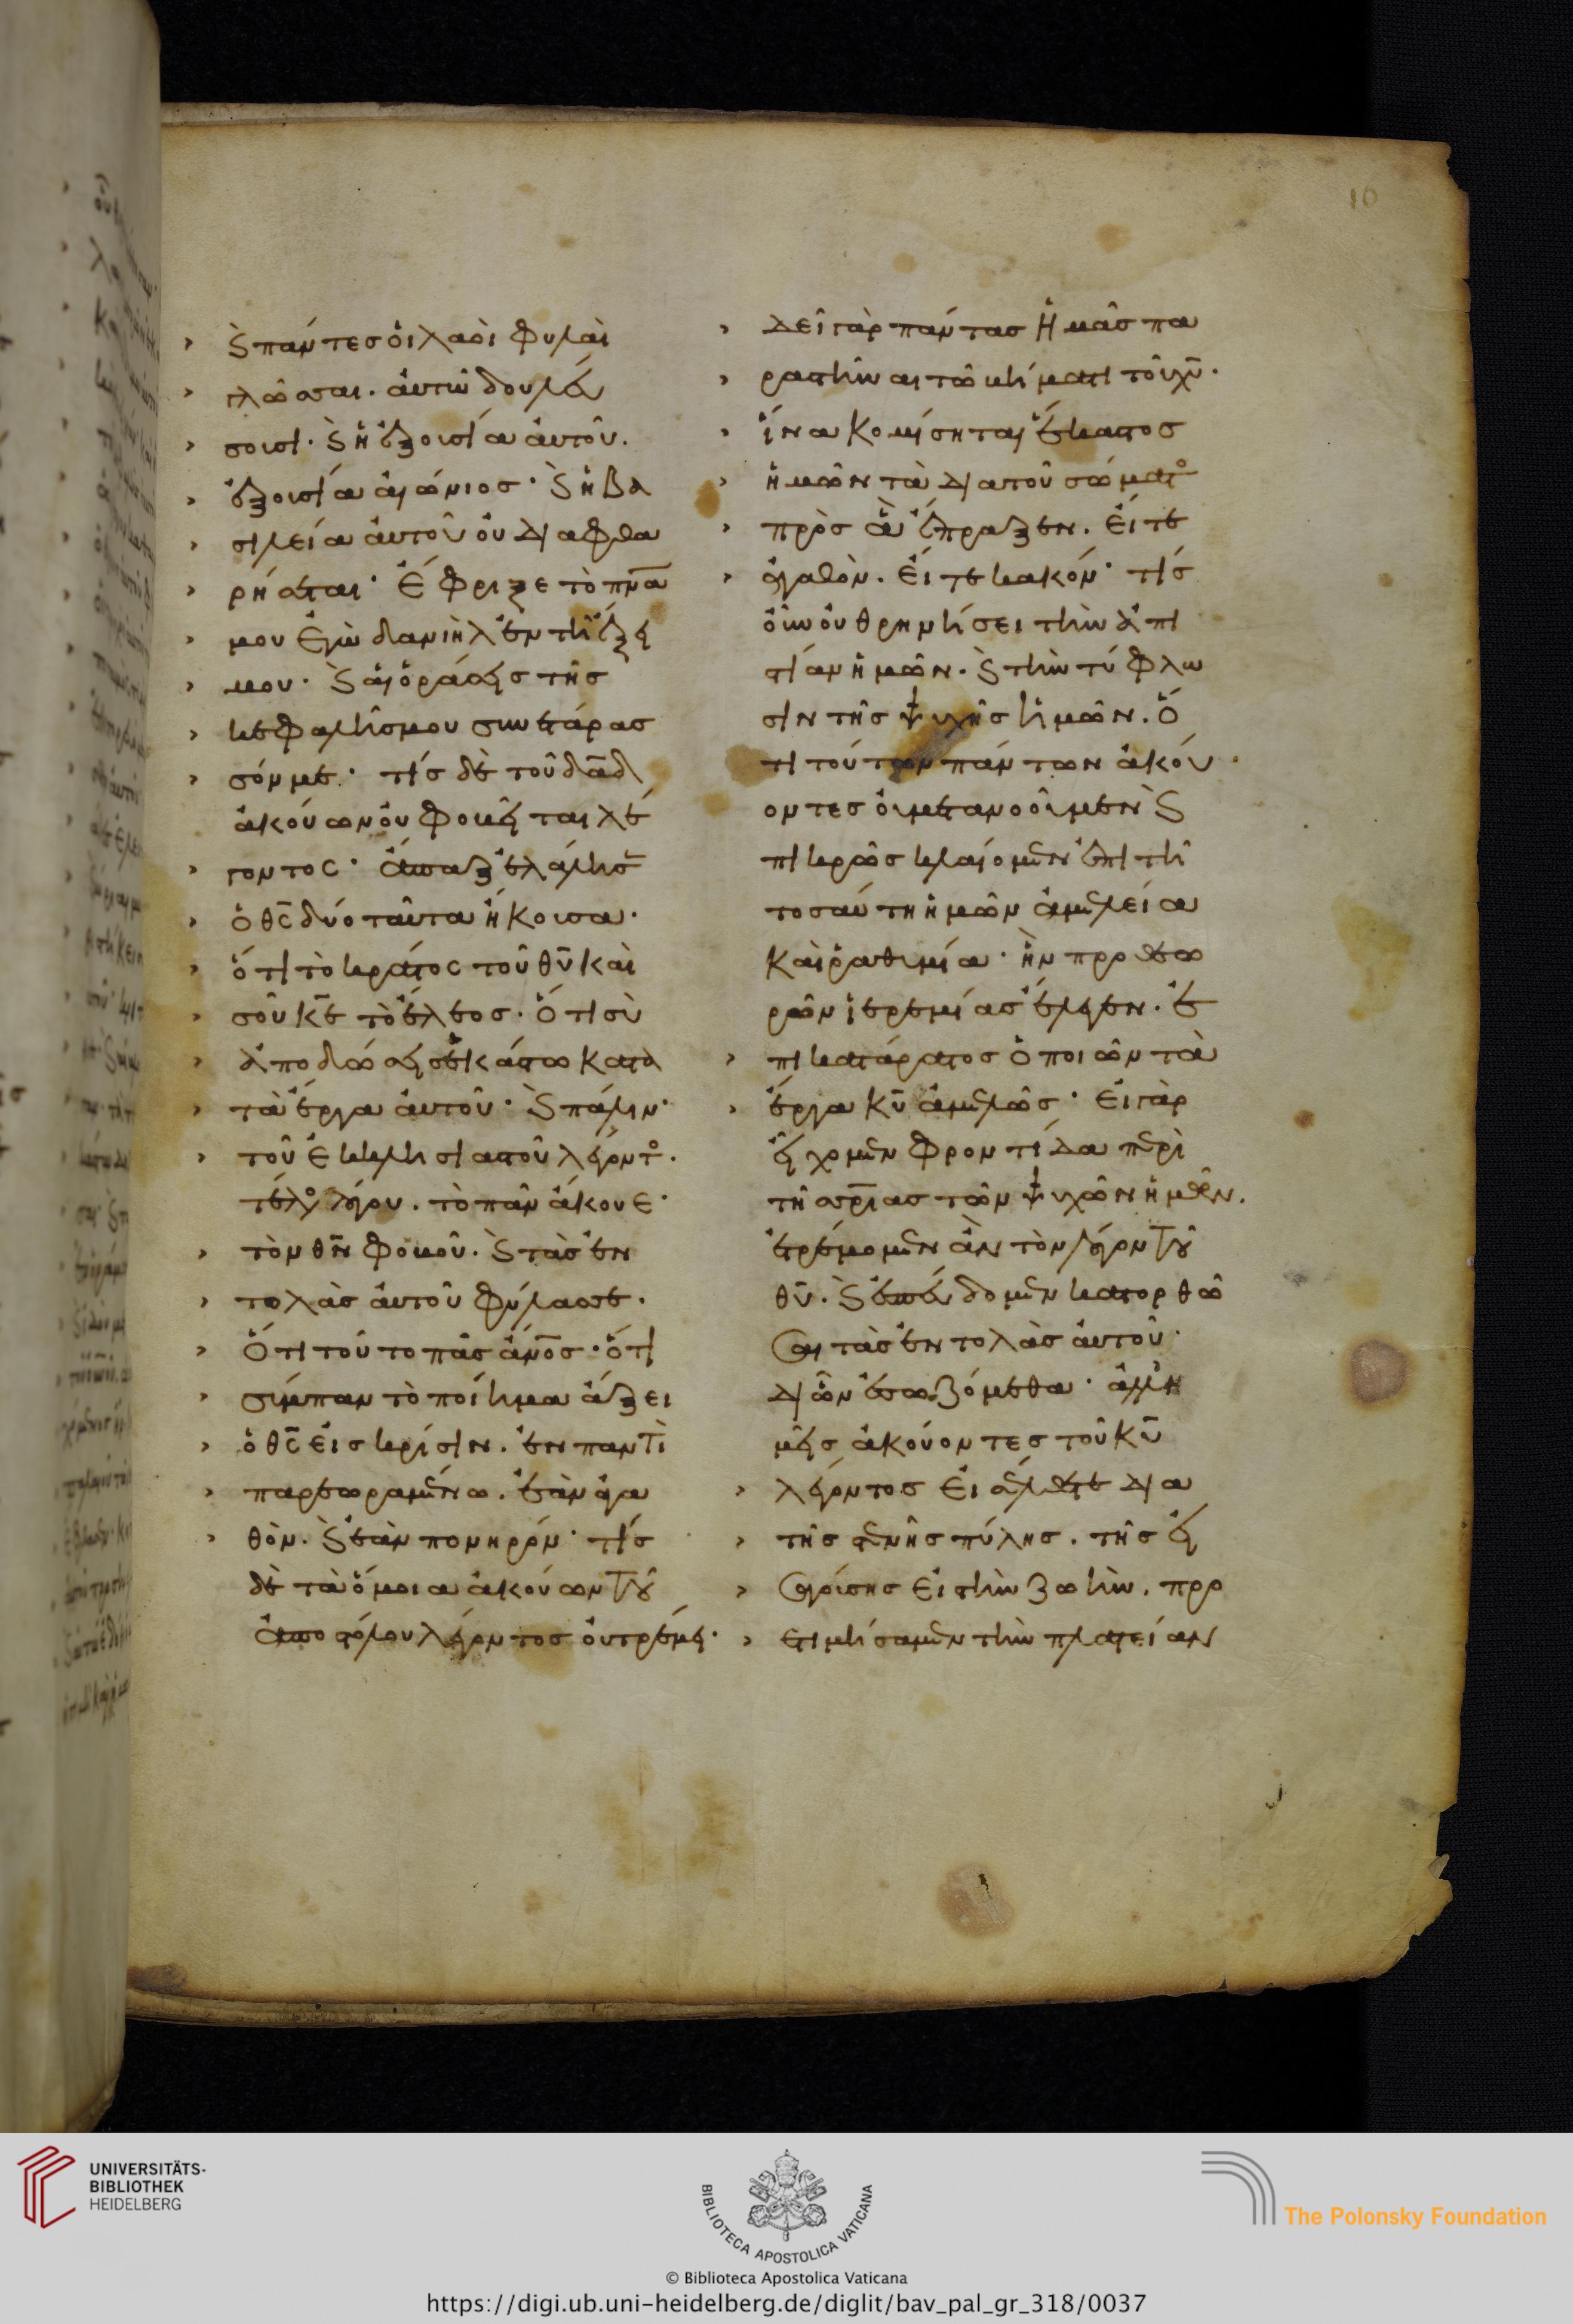 16
ϗ πάντες ὁι λαὸι φυλαὶ
γλῶσσαι. ἀυτῶ δουλεύ
σουσι· ϗ ἡ ἐξουσία ἀυτοῦ.
ἐξουσία ἀιώνιος· ϗ ἡ βα
σιλεία ἀυτοῦ ὀυ διαφθα
ρήσεται· ἔφριξε τὸ πν̅α
μου ἐγὼ δανιὴλ ἐν τῆ ἕξει
μου· ϗ ἁι ὁράσεις τῆς
κεφαλῆς μου συνετάρασ
σόν με· τίς δὲ τοῦ δα̅δ
ἀκούων ὀυ φοβεῖται λέ
γοντος· ἅπαξ ἐλάλησ
ὁ θς̅ δύο ταῦτα ἤκουσα·
ὅτι τὸ κράτος τοῦ θυ̅ καὶ
σοῦ κε̅ τὸ ἔλεος· ὅτι σὺ
ἀποδώσεις ἑκάστω κατὰ
τὰ ἔργα ἀυτοῦ· ϗ πάλιν·
τοῦ ἐκκλησιαστοῦ λέγοντο.
τέλο λόγου. τὸ πᾶν ἄκουε·
τὸν θν̅ φοβοῦ. ϗ τὰς ἐν
τολὰς ἀυτοῦ φύλασσε.
ὅτι τοῦτο πᾶς ἄνο̅ς· ὅτι
σύμπαν τὸ ποίημα ἄξει
ὁ θς̅ ἐις κρίσιν. ἐν παντὶ
παρεωραμένω. ἐὰν ἀγα
θὸν. ϗ ἐὰν πονηρόν· τίς
δὲ τὰ ὅμοια ἀκούων τοῦ
ἀποστόλου λέγοντος ὀυ τρέμει·
δεῖ γὰρ πάντας ἡμᾶς πα
ραστῆναι τῶ βήματι τοῦ χυ̅.
ἵνα κομίσηται ἕκαστος
ἡμῶν τὰ δια τοῦ σώματο
πρὸς ἃ ἔπραξεν. ἔιτε
ἀγαθὸν. ἔιτε κακόν· τίς
οὖν ὀυ θρηνήσει τὴν ἀπι
στίαν ἡμῶν. ϗ τὴν τύφλω
σιν τῆς ψυχῆς ἡμῶν. ὅ
τι τούτων πάντων ἀκού
οντες ὀυ μετανοοῦμεν ϗ
πικρῶς κλαίομεν ἐπὶ τῆ
τοσαύτη ἡμῶν ἀμελεία
καὶ ῥαθυμία· ἣν προθεω
ρῶν ἱερεμίας ἔλεγεν. ἐ
πικατάρατος ὁ ποιῶν τὰ
ἔργα κυ̅ ἀμελῶς· ἐι γὰρ
εἴχομεν φροντίδα περὶ
τῆ σρ̅ιας τῶν ψυχῶν ἡμῶν.
ἐτρέμομεν ἂν τὸν λόγον τοῦ
θυ̅. ϗ ἐσπεύδομεν κατορθῶ
σαι τὰς ἐντολὰς ἀυτοῦ·
δι ὧν ἐσωζόμεθα· ἀλλ ἡ
μεῖς ἀκούοντες τοῦ κυ̅
λέγοντος ἐισέλθετε δια
τῆς στενῆς πύλης. τῆς εἰ
σαγούσης ἐις τὴν ζωὴν. προ
ετιμήσαμεν τὴν πλατείαν
UNIVERSITÄTS-
BIBLIOTHEK
HEIDELBERG
BIBLIOTECA APOSTOLICA VATICANA
The Polonsky Foundation
© Biblioteca Apostolica Vaticana
https://digi.ub.uni-heidelberg.de/diglit/bav_pal_gr_318/0037